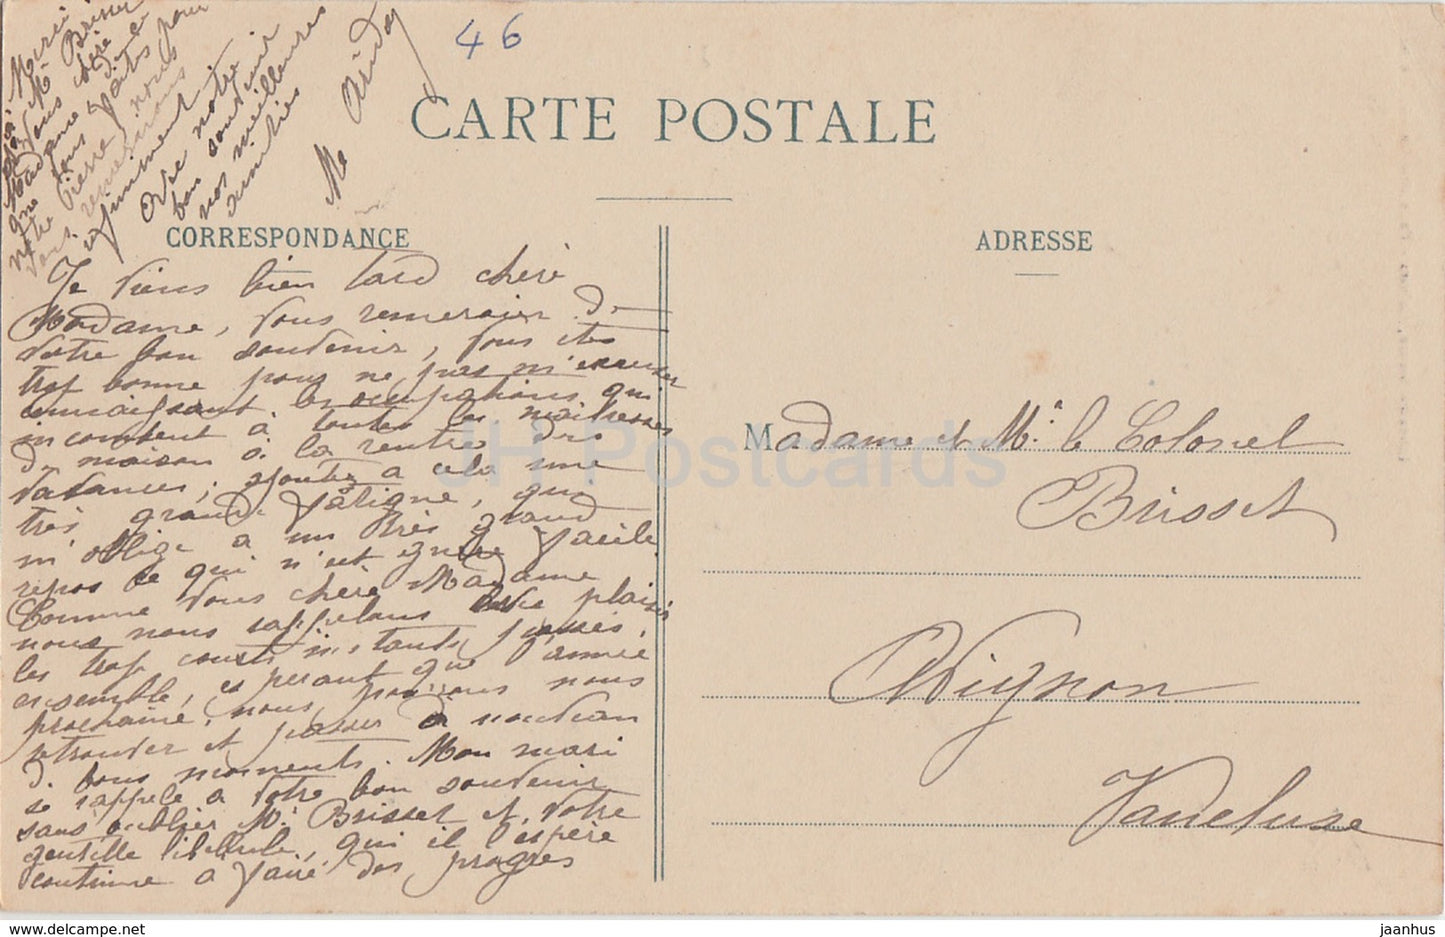 46
CARTE POSTALE
CORRESPONDANCE
ADRESSE
Je viens bien tard chère
Madame, vous remercier de
votre bon souvenir, vous êtes
trop bonne pour ne pas m'excuser
connaissant les occupations qui
incombent à toutes les maîtresses
de maison à la rentrée des
vacances; ajoutez à cela une
très grande fatigue, qui
m'oblige à un très grand
repos ce qui n'est guère facile
Comme vous chère Madame
nous nous rappelons avec plaisir
les trop courts instants passés
ensemble, espérant que l'année
prochaine, nous pourrons nous
retrouver et passer de nouveau
de bons moments. Mon mari
se rappele à votre bon souvenir
sans oublier Mr Brisset et votre
gentille libellule, qui il l'espère
continue à faire des progrès
Mr Brisset
vous chère
Madame
que pour
notre Pierre nous
vous remercions
infiniment.
notre
bon souvenir
nos meilleures
amitiés
Madame et Mr. le Colonel
Brisset
Avignon
Vaucluse
JH Postcards
jaanhus
www.delcampe.net